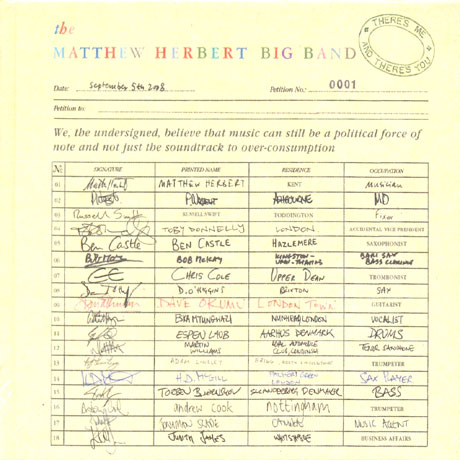 the
MATTHEW HERBERT BIG BAND
THERE'S ME
AND THERE'S YOU
Date: September 5th 2008 Petition No.: 0001
Petition to:
We, the undersigned, believe that music can still be a political force of
note and not just the soundtrack to over-consumption
No SIGNATURE PRINTED NAME RESIDENCE OCCUPATION
01 MATTHEW HERBERT KENT MUSICIAN
02 ASHBOURNE MD
03 RUSSELL SWIFT TODDINGTON Fixer
04 TOBY DONNELLY LONDON ACCIDENTAL VICE PRESIDENT
05 Ben Castle BEN CASTLE HAZLEMERE SAXOPHONIST
06 BOB MCKAY KINGSTON- UPON-THAMES BARI SAX BASS CLARINET
07 CHRIS COLE UPPER DEAN TROMBONIST
08 D. O'HIGGINS BRIXTON SAX
09 DAVE OKUMU LONDON TOWN GUITARIST
10 NUNHEAD, LONDON VOCALIST
11 ESPEN LAUB AARHUS DENMARK DRUMS
12 MARTIN WILLIAMS TENOR SAXOPHONE
13 TRUMPETER
14 LONDON SAX PLAYER
15 SKANDERBORG DENMARK BASS
16 andrew cook nottingham TRUMPETER
17 JONATHAN SLADE MUSIC AGENT
18 JUDITH JAMES WHITSTABLE BUSINESS AFFAIRS